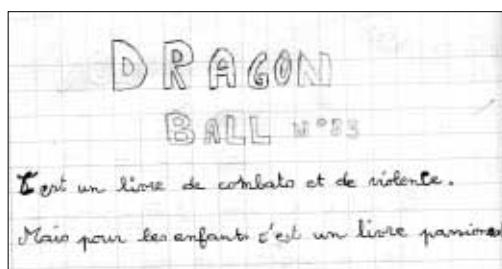 DRAGON
BALL N°33
C'est un livre de combats et de violence.
Mais pour les enfants c'est un livre passion